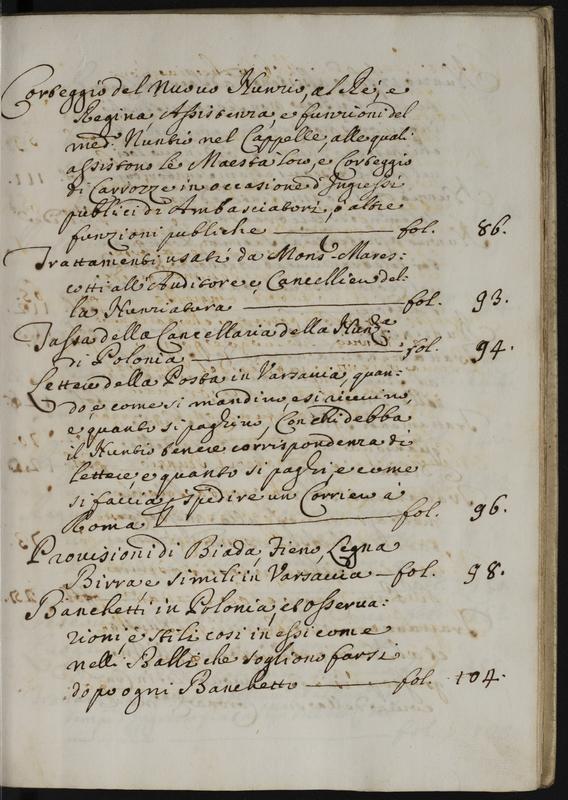 Corteggio del Nuovo Nunzio, al Ré, e
Regina, Assistenza, e funzioni del
med.º Nuntio nel Cappelle, alle quali
assistono le Maestà loro, e Corteggio
di Carrozze in occasione d'Ingressi
publici di Ambasciatori, ò altre
funzioni publiche fol. 86.
Trattamenti usati da Mons.r Mares:
cotti all'Auditore e Cancelliere del:
la Nunziatura fol. 93.
Tassa della Cancellaria della Nunz.ra
di Polonia fol. 94.
Lettere della Posta in Varsavia, quan:
do, e come si mandino e si ricevino,
e quanto si paghino, Con chi debba
il Nuntio tenere corrispondenza di
lettere, e quanto si paghi e come
si faccia à spedire un Corriero à
Roma fol. 96.
Provisioni di Biada, Fieno, Legna
Birra e simili in Varsavia fol. 98.
Banchetti in Polonia, et osserva:
zioni, e stili cosi in essi come
nelli Balli che sogliono farsi
dopo ogni Banchetto fol. 104.